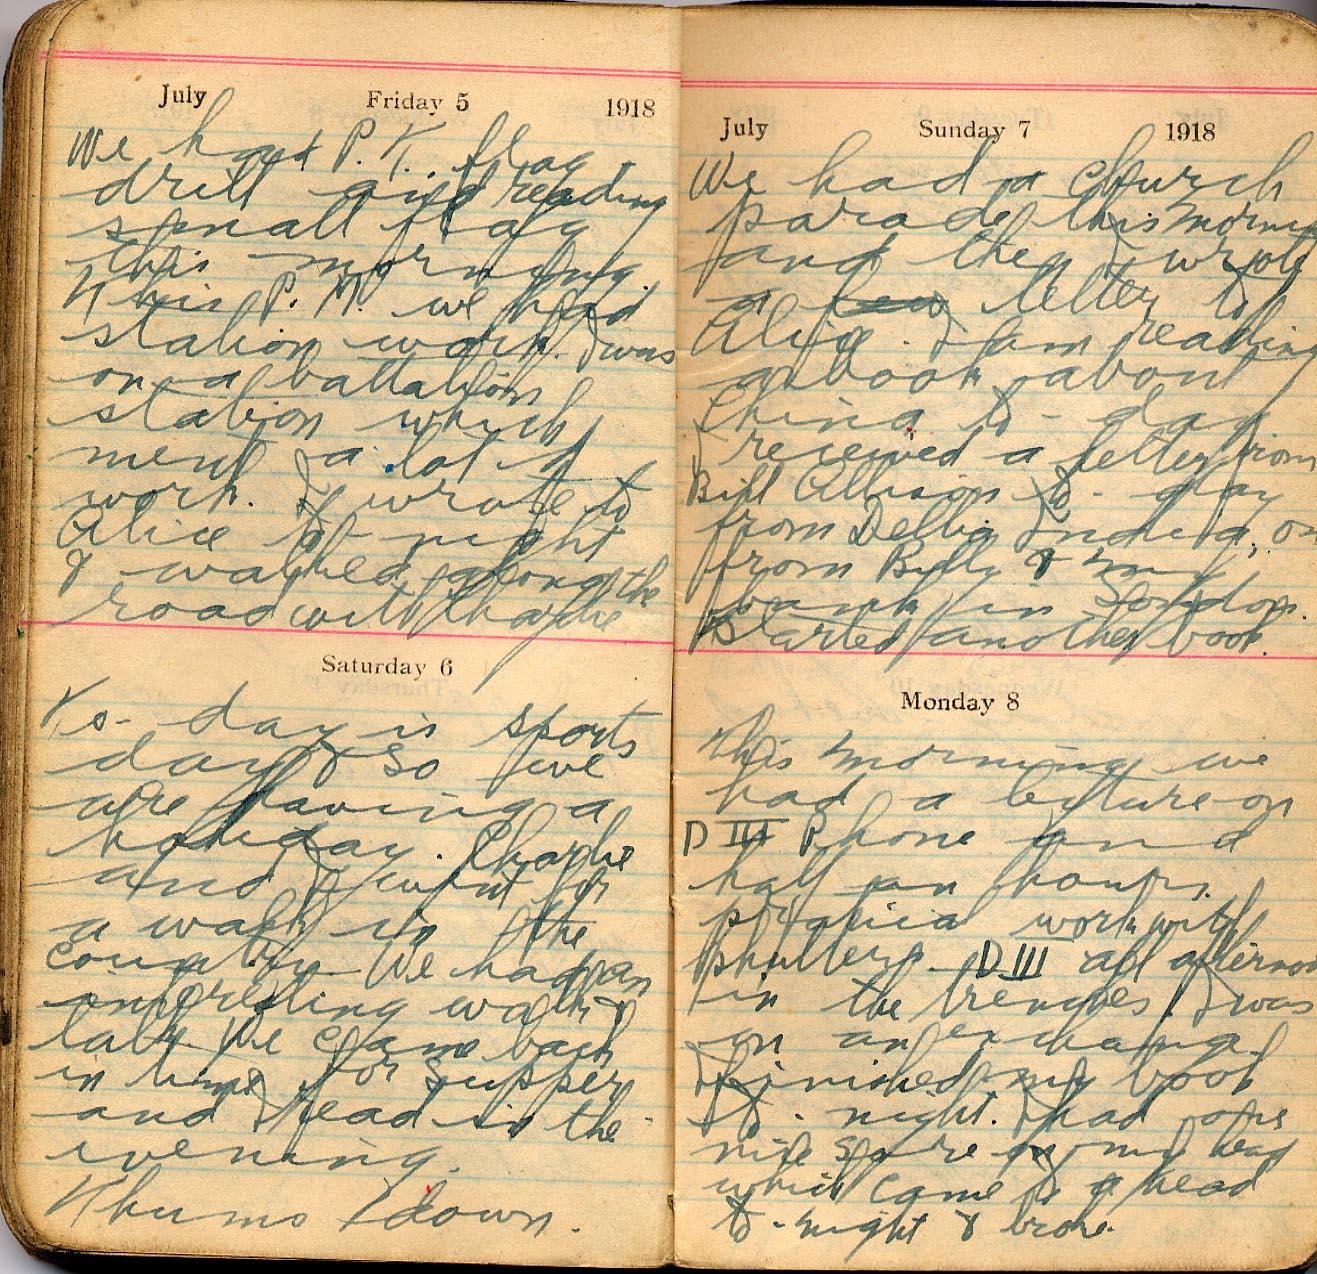 July Friday 5 1918
We had P.T. flag
drill and reading
small flag
this morning.
This P.M. we had
station work. I was
on a battalion
station which
ment a lot of
work. I wrote to
Alice at night
& walked along the
road with Charlie
Saturday 6
To-day is sports
day & so we
are having a
holiday. Charlie
and I went for
a walk in the
country We had an
interesting walk &
talk We came back
in time for supper
and I read in the
evening.
Thums down.
July Sunday 7 1918
We had a church
parade this morning
and then I wrote
a few letter to
Alice. I am reading
a book about
China to-day
I received a letter from
Bill Allison to-day
from Delhi India, on
from Billy & my
bank in London.
Started another book.
Monday 8
This morning we
had a lecture on
D III Phone and
half an hours
practical work with
phullers D III all afternoon
in the trenches. I was
on an exchange.
I finished my book
to-night. I had one
nice spare on my head
which came to a head
to-night & broke.